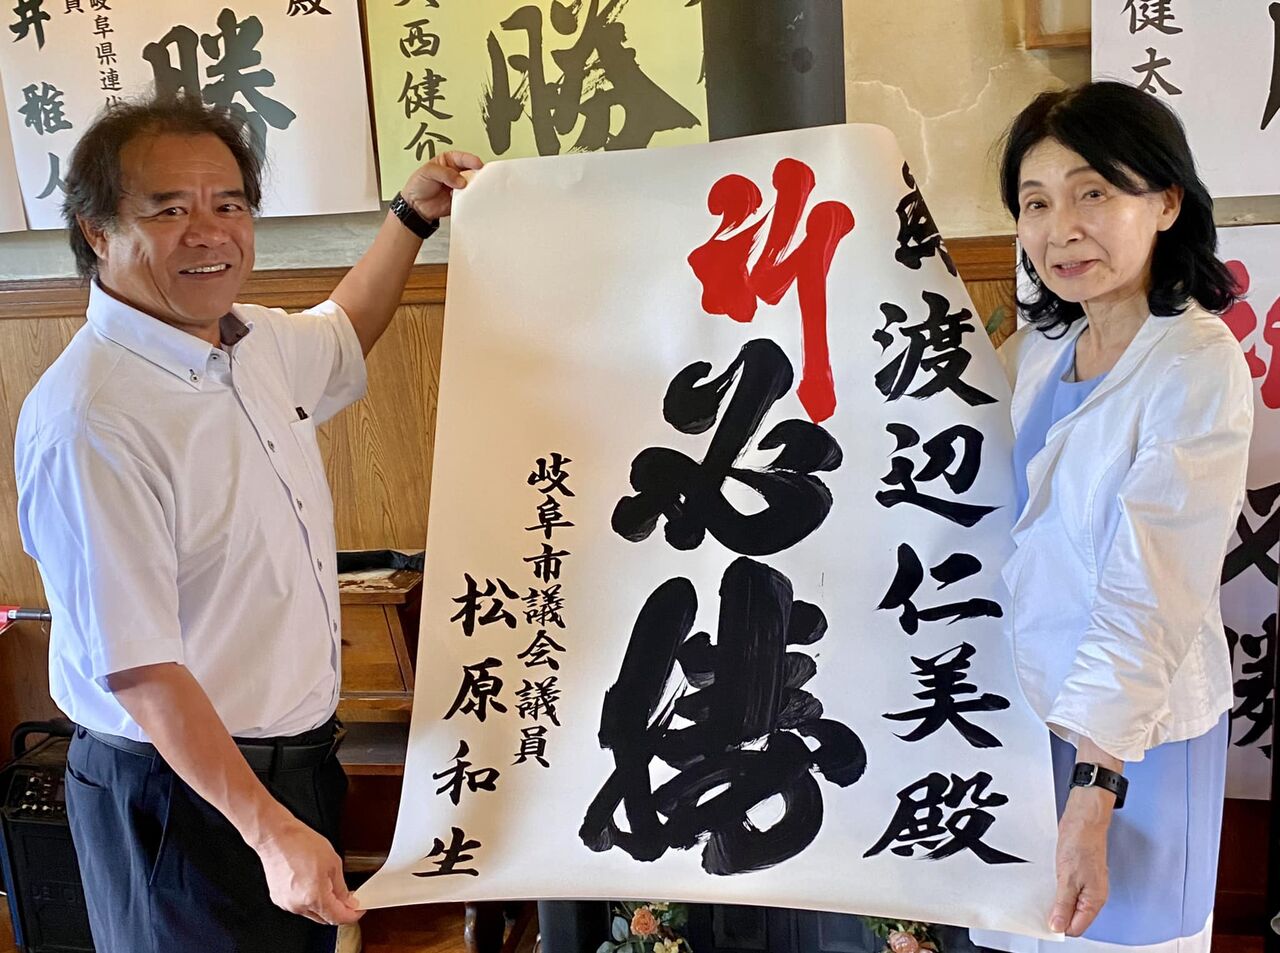 為 渡辺仁美殿
祈必勝
岐阜市議会議員
松原和生
健太
勝
西健介
殿
勝
岐阜県連代
員
井雅人